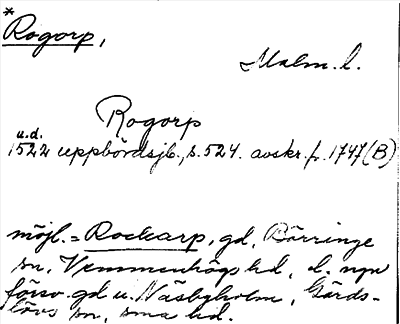 *
Rogorp,
Malm. l.
Rogorp
u.d.
1522 uppbördsjb., s. 524. avskr. fr. 1747 (B)
möjl. = Rockarp, gd, Börringe
sn, Vemmenhögs hd, l. ngn
försv. gd u. Näsbyholm, Gärds-
lövs sn, sma hd.